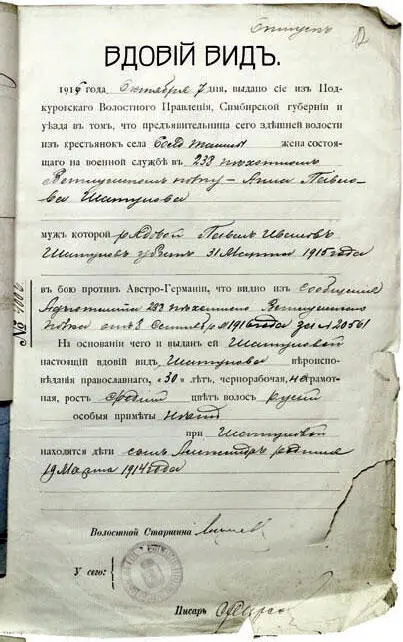 12
ВДОВІЙ ВИДЪ.
1916 года Октября 7 дня, выдано сіе изъ Под-
куровскаго Волостного Правленія, Симбирской губерніи и
уѣзда въ томъ, что предъявительница сего здѣшней волости
изъ крестьянокъ села жена состоя-
щаго на военной службѣ въ 233 пѣхотномъ
полку – Анна Павло-
ва Шатунова
мужъ которой рядовой Павелъ Ивановъ
Шатуновъ убитъ 31 Марта 1915 года
въ бою противъ Австро-Германіи, что видно изъ сообщенія
233 пѣхотнаго
полка отъ 8 Сентября 1916 года за № 20561
На основаніи чего и выданъ ей Шатуновой
настоящій вдовій видъ, Шатунова вѣроиспо-
вѣданія православнаго, «30» лѣтъ, чернорабочая, неграмот-
ная, ростъ средній цвѣтъ волосъ русый
особыя примѣты
при Шатуновой
находятся дѣти сынъ Александръ родился
19 Марта 1914 года
Волостной Старшина
У сего:
Писарь
№